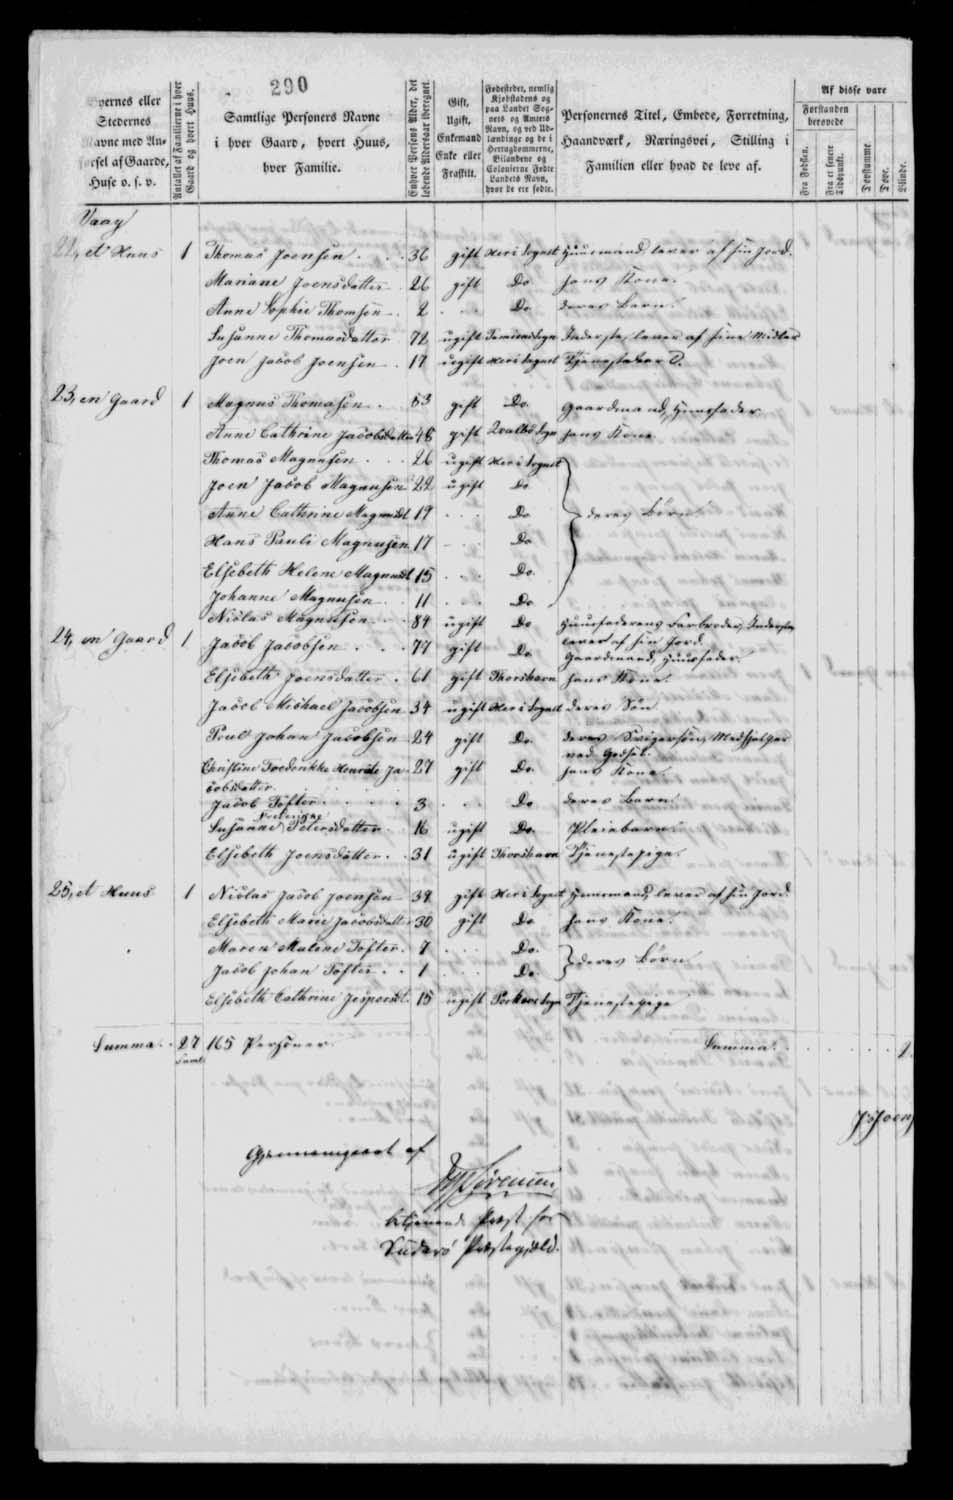 290
Byernes eller Stedernes Navne med Anførsel af Gaarde, Huse o. s. v.
Antallet af Familierne i hver Gaard og hvert Huus.
Samtlige Personers Navne i hver Gaard, hvert Huus, hver Familie.
Enhver Persons Alder, det løbende Aldersaar iberegnet.
Gift, Ugift, Enkemand Enke eller Fraskilt.
Fødestedet, nemlig Kjøbstadens og paa Landet Sognets og Amtets Navn, og ved Udlændinge og de i Hertugdømmerne, Bilandene og Colonierne Fødte Landets Navn, hvor de ere fødte.
Personernes Titel, Embede, Forretning, Haandværk, Næringsvei, Stilling i Familien eller hvad de leve af.
Af disse vare
Forstanden berøvede
Fra Fødslen.
Fra et senere Tidspunkt.
Døvstumme
Døve.
Blinde.
Vaag
22, et Huus 1 Thomas Joensen 36 gift Heri Sognet Huusmand, lever af sin Jord.
Mariane Joensdatter 26 gift Do hans Kone.
Anne Sophie Thomsen 2 Do deres Barn.
Susanne Thomasdatter 72 ugift Famiensogn Inderste, lever af sine Midler
Joen Jacob Joensen 17 ugift Heri Sognet Tjenestekarl
23, en Gaard 1 Magnus Thomasen 53 gift Do. Gaardmand, Huusfader
Anne Cathrine Jacobsdatter 48 gift Qvalbø Sogn hans Kone
Thomas Magnusen 26 ugift Heri Sognet
Joen Jacob Magnusen 22 ugift Do
Anne Cathrine Magnusdt 19 Do deres Børn
Hans Pauli Magnusen 17 Do
Elsebeth Helene Magnusdt 15 Do.
Johanne Magnusen 11 Do
Niclas Magnusen 84 ugift Do Huusfaderens Farbroder, Inderste lever af sin Jord.
24, en Gaard 1 Jacob Jacobsen 77 gift Do Gaardmand, Huusfader.
Elsebeth Joensdatter 61 gift Thorshavn hans Kone
Jacob Michael Jacobsen 34 ugift Heri Sognet deres Søn
Poul Johan Jacobsen 24 gift Do. deres Svigersøn, Medhjelper ved Godset.
Christine Frederikke Henriete Jacobsdatter 27 gift Do. hans Kone
Jacob Tofter 3 Do deres Barn
Susanne Frederikke Petersdatter 16 ugift Do. Pleiebarn
Elsebeth Joensdatter 31 ugift Thorshavn Tjenestepige.
25, et Huus 1 Niclas Jacob Joensen 39 gift Heri Sognet Huusmand, lever af sin Jord
Elsebeth Marie Jacobsdatter 30 gift Do hans Kone.
Maren Malene Tofter 7 Do.
Jacob Johan Tofter 1 Do. deres Børn
Elsebeth Cathrine Jespersdt. 15 ugift Porkere Sogn Tjenestepige
Summa 27 165 Personer. Summa 2.
Gjennemgaaet af
Sørensen
Præst for
Suderø Præstegjæld.